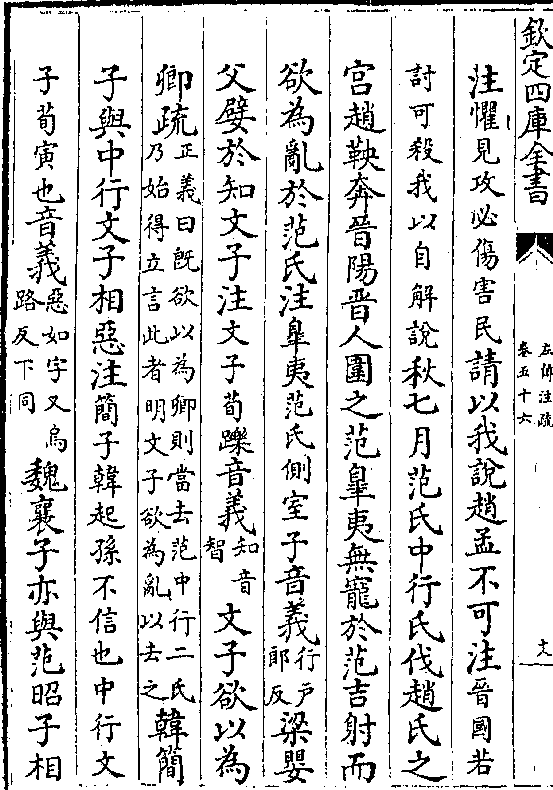 欽定四庫全書
左傳注疏
卷五十六
注懼見攻必傷害民請以我說趙孟不可注晉國若
討可殺我以自解說秋七月范氏中行氏伐趙氏之
宮趙鞅奔晉陽晉人圍之范臯夷無寵於范吉射而
欲為亂於范氏注臯夷范氏側室子音義行户郎反梁嬰
父嬖於知文子注文子荀躒音義知音智文子欲以為
卿疏正義曰既欲以為卿則當去范中行二氏乃始得立言此者明文子欲為亂以去之韓簡
子與中行文子相惡注簡子韓起孫不信也中行文
子荀寅也音義惡如字又烏路反下同魏襄子亦與范昭子相